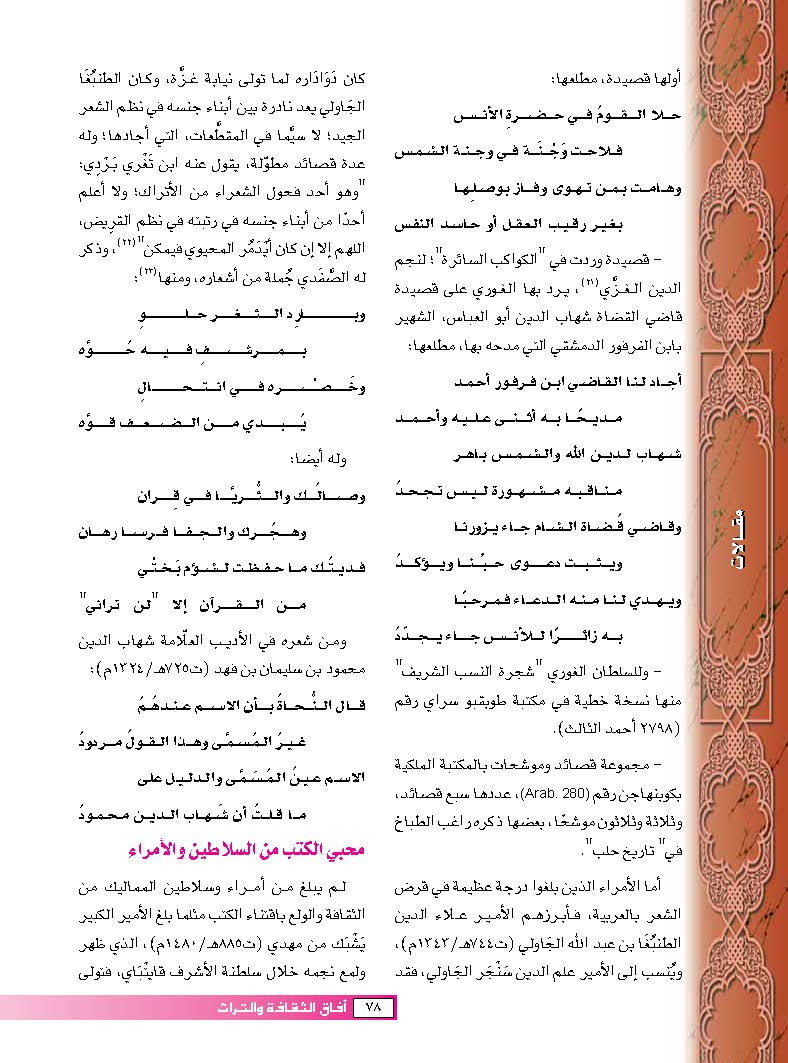 أولها قصيدة، مطلعها:
حلا القومُ في حضرةِ الأنس
فلاحت وَجْنَة في وجنة الشمس
وهامت بمن تهوى وفاز بوصلِها
بغير رقيب العقل أو حاسد النفس
– قصيدة وردت في "الكواكب السائرة"؛ لنجم
الدين الغَزِّي(٢١)، يرد بها الغوري على قصيدة
قاضي القضاة شهاب الدين أبو العباس، الشهير
بابن الفرفور الدمشقي التي مدحه بها، مطلعها:
أجاد لنا القاضي ابن فرفور أحمد
مديحًا به أثنى عليه وأحمد
شهاب لدين الله والشمس باهر
مناقبه مشهورة ليس تجحدُ
وقاضي قُضاة الشام جاء يزورنا
ويثبت دعوى حبّنا ويؤكدُ
ويهدي لنا منه الدعاء فمرحبًا
به زائرًا للأنس جاء يجدّدُ
– وللسلطان الغوري "شجرة النسب الشريف"
منها نسخة خطية في مكتبة طوبقبو سراي رقم
(٢٧٩٨ أحمد الثالث).
– مجموعة قصائد وموشحات بالمكتبة الملكية
بكوبنهاجن رقم (Arab. 280)، عددها سبع قصائد،
وثلاثة وثلاثون موشحًا، بعضها ذكره راغب الطباخ
في "تاريخ حلب".
أما الأمراء الذين بلغوا درجة عظيمة في قرض
الشعر بالعربية، فأبرزهم الأمير علاء الدين
الطنبُغَا بن عبد الله الجَاولي (ت٧٤٤هـ/١٣٤٣م)،
ويُنسب إلى الأمير علم الدين سَنْجَر الجَاولي، فقد
كان دَوَادَاره لما تولى نيابة غزَّة، وكان الطنبُغَا
الجَاولي يعد نادرة بين أبناء جنسه في نظم الشعر
الجيد؛ لا سيَّما في المقطَّعات، التي أجادها؛ وله
عدة قصائد مطوّلة، يقول عنه ابن تَغْري بَرْدِي:
"وهو أحد فحول الشعراء من الأتراك؛ ولا أعلم
أحدًا من أبناء جنسه في رتبته في نظم القريض،
اللهم إلا إن كان أَيْدَمُر المحيوي فيمكن"(٢٢)، وذكر
له الصَّفَدي جُملة من أشعاره، ومنها(٢٣):
وبـارِد الثغر حلوِ
بمرشفٍ فيه حُوَّه
وخَصْره في انتحالِ
يُبدي من الضعف قوَّه
وله أيضا:
وصالُك والثُّريَّا في قِران
وهجُرك والجفا فرسا رهان
فديتُك ما حفظت لشؤم بَختْي
من القرآن إلا "لن تراني"
ومن شعره في الأديب العلّامة شهاب الدين
محمود بن سليمان بن فهد (ت٧٢٥هـ/١٣٢٤م):
قال النُّحاةُ بأن الاسم عندهُمُ
غيرُ المُسمَّى وهذا القولُ مردودُ
الاسم عينُ المُسَمَّى والدليل على
ما قلتُ أن شَهاب الدين محمودُ
محبي الكتب من السلاطين والأمراء
لم يبلغ من أمراء وسلاطين المماليك من
الثقافة والولع باقتناء الكتب مثلما بلغ الأمير الكبير
يَشْبَك من مهدي (ت٨٨٥هـ/١٤٨٠م)، الذي ظهر
ولمع نجمه خلال سلطنة الأشرف قايتْبَاي، فتولى
مقالات
٧٨ آفاق الثقافة والتراث